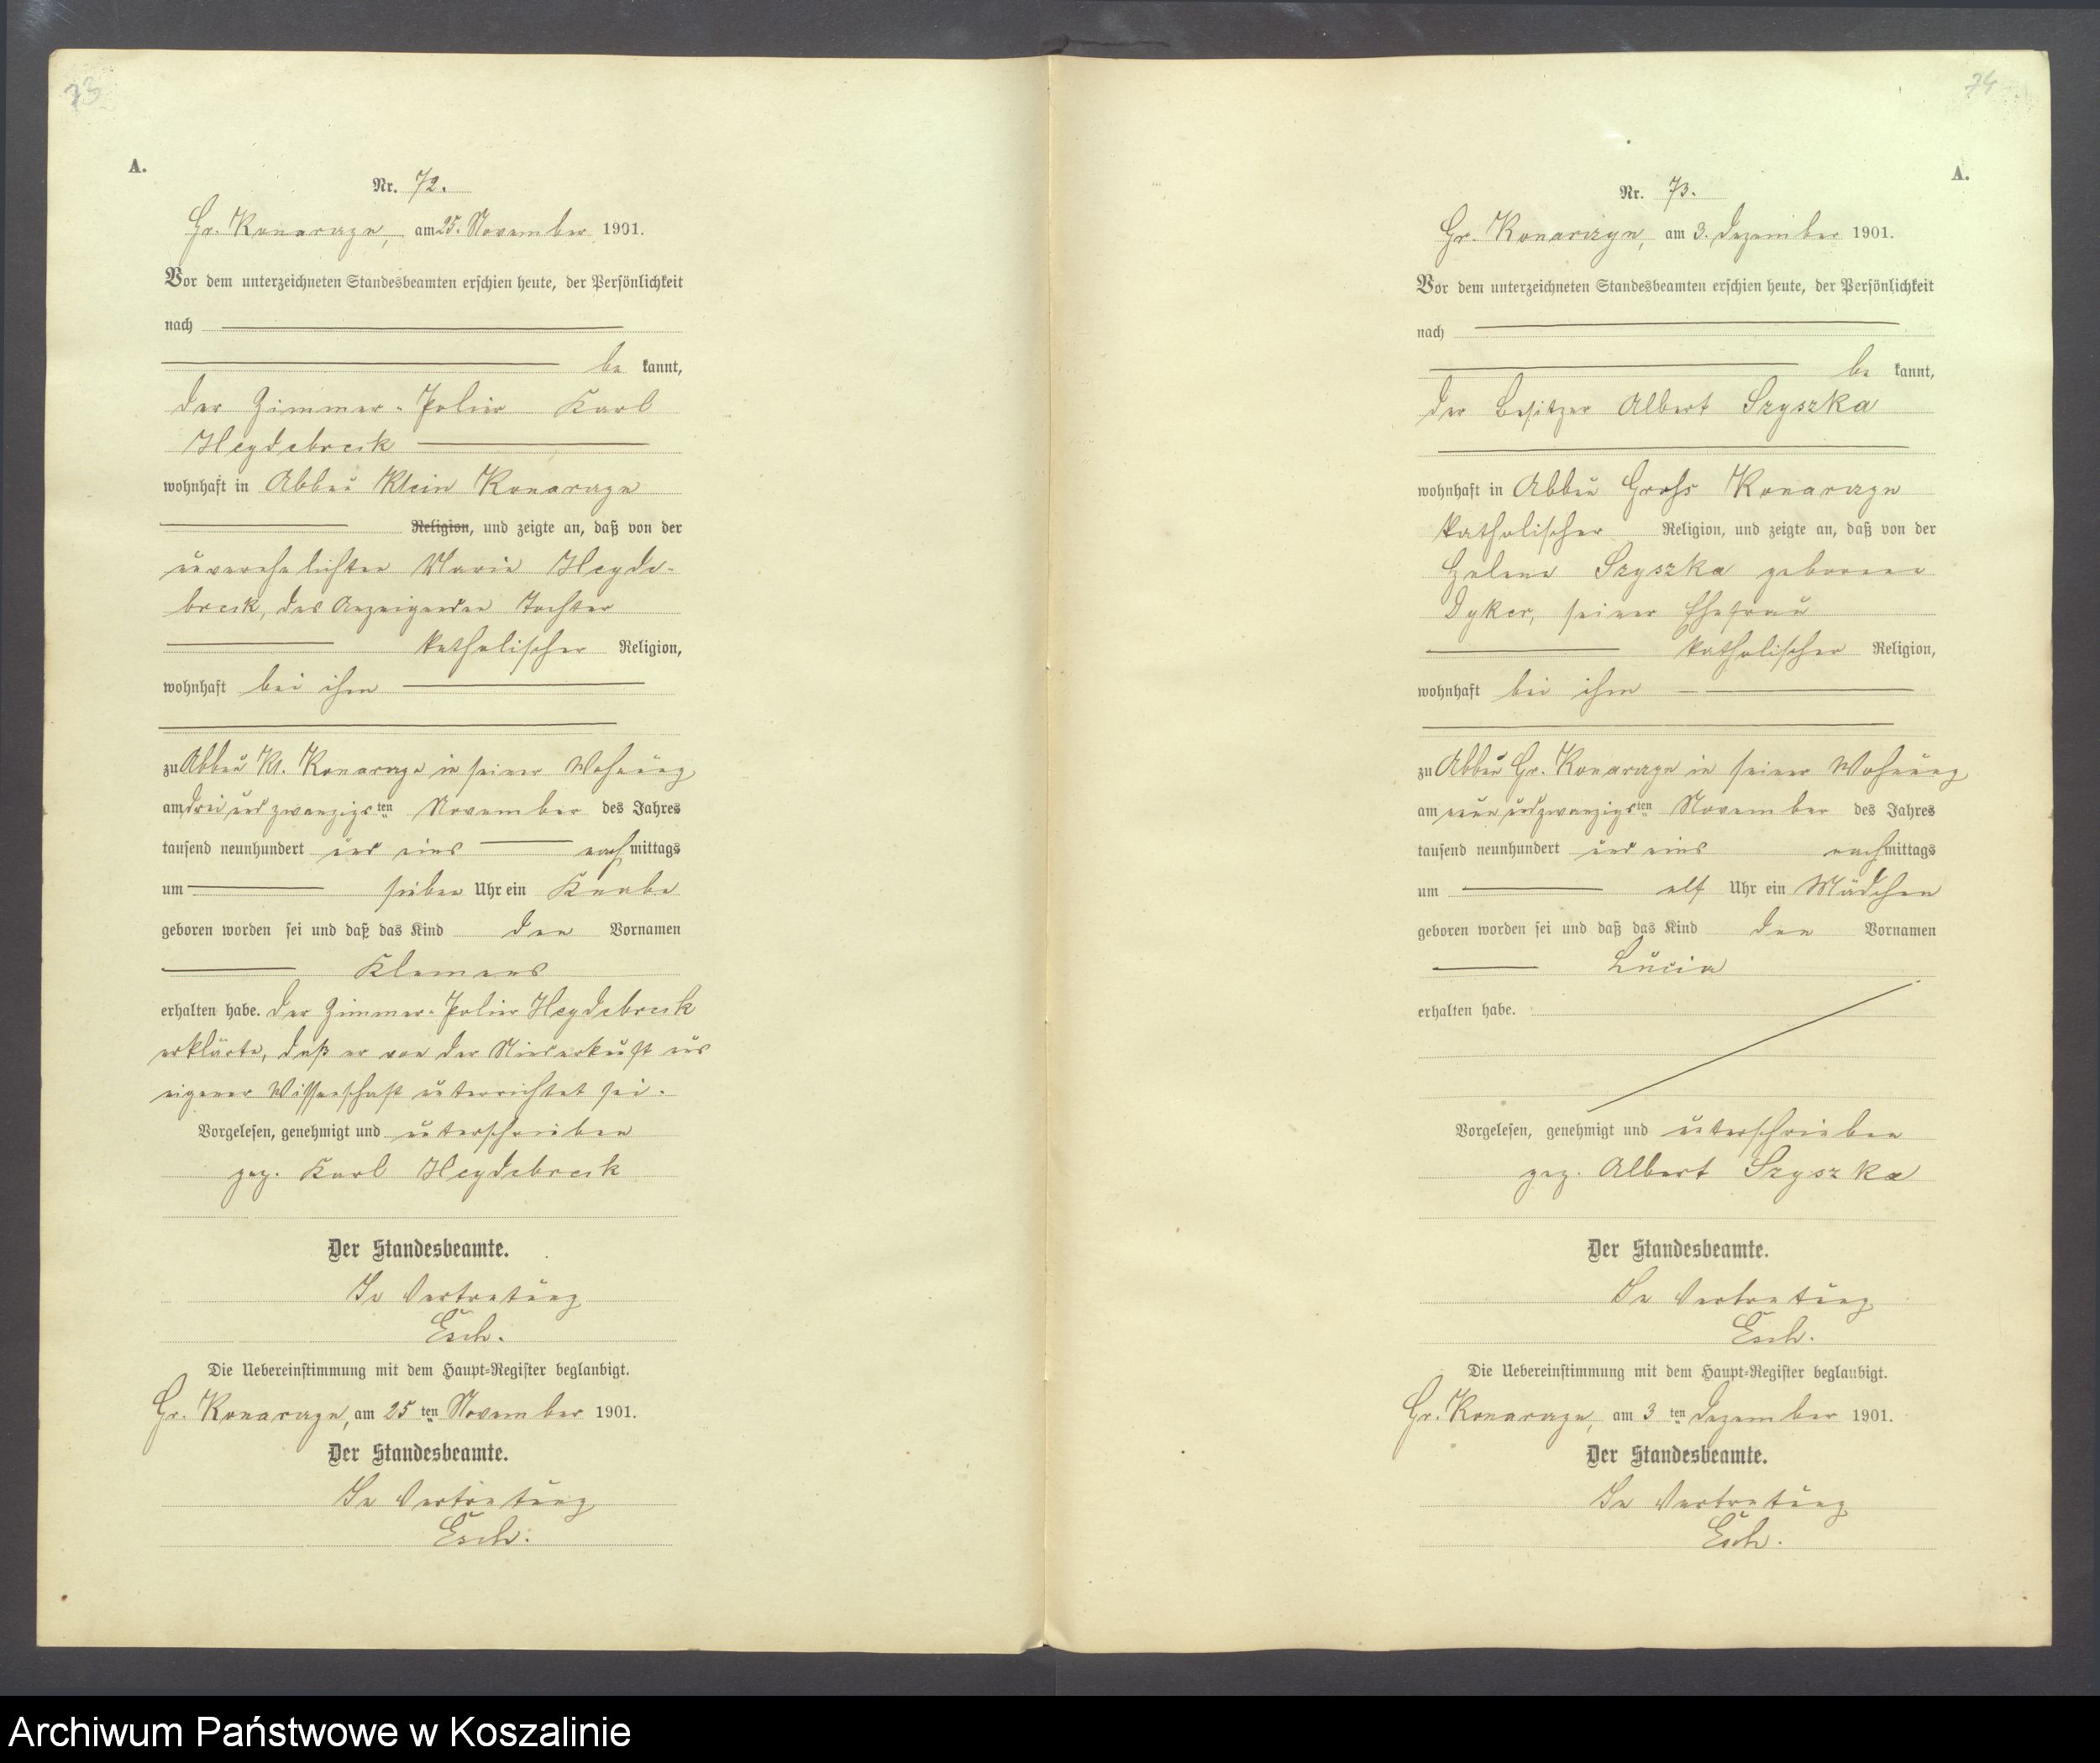 73
A.
Nr. 72.
Gr. Konarzyn, am 25. November 1901.
Vor dem unterzeichneten Standesbeamten erschien heute, der Persönlichkeit
nach
be kannt,
der Zimmer-Polier Karl
Heydebreck
wohnhaft in Abbau Klein Konarzyn
Religion, und zeigte an, daß von der
unverehelichten Marie Heyde-
breck, des Anzeigenden Tochter
katholischer Religion,
wohnhaft bei ihm
zu Abbau Kl. Konarzyn in seiner Wohnung
am drei und zwanzigsten November des Jahres
tausend neunhundert und eins nachmittags
um sieben Uhr ein Knabe
geboren worden sei und daß das Kind den Vornamen
Klemens
erhalten habe. Der Zimmer-Polier Heydebreck
erklärte, daß er von der Niederkunft aus
eigener Wissenschaft unterrichtet sei.
Vorgelesen, genehmigt und unterschrieben
gez. Karl Heydebreck
Der Standesbeamte.
In Vertretung
Esch.
Die Uebereinstimmung mit dem Haupt-Register beglaubigt.
Gr. Konarzyn, am 25 ten November 1901.
Der Standesbeamte.
In Vertretung
Esch.
74
A.
Nr. 73.
Gr. Konarzyn, am 3. Dezember 1901.
Vor dem unterzeichneten Standesbeamten erschien heute, der Persönlichkeit
nach
be kannt,
der Besitzer Albert Szyszka
wohnhaft in Abbau Gross Konarzyn
katholischer Religion, und zeigte an, daß von der
Helene Szyszka geborene
Dyker, seiner Ehefrau
katholischer Religion,
wohnhaft bei ihm
zu Abbau Gr. Konarzyn in seiner Wohnung
am neun und zwanzigsten November des Jahres
tausend neunhundert und eins nachmittags
um elf Uhr ein Mädchen
geboren worden sei und daß das Kind den Vornamen
Lucia
erhalten habe.
Vorgelesen, genehmigt und unterschrieben
gez. Albert Szyszka
Der Standesbeamte.
In Vertretung
Esch.
Die Uebereinstimmung mit dem Haupt-Register beglaubigt.
Gr. Konarzyn, am 3 ten Dezember 1901.
Der Standesbeamte.
In Vertretung
Esch.
Archiwum Państwowe w Koszalinie